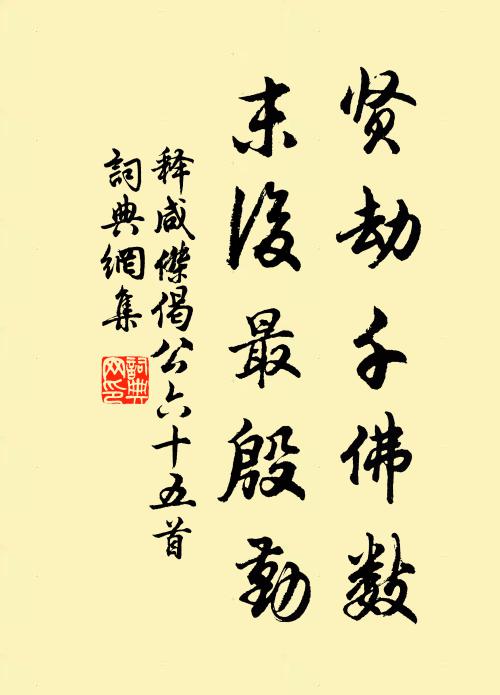 贤劫千佛数
末後最殷勤
释咸傑偈公六十五首
詞典網集
詞典网印